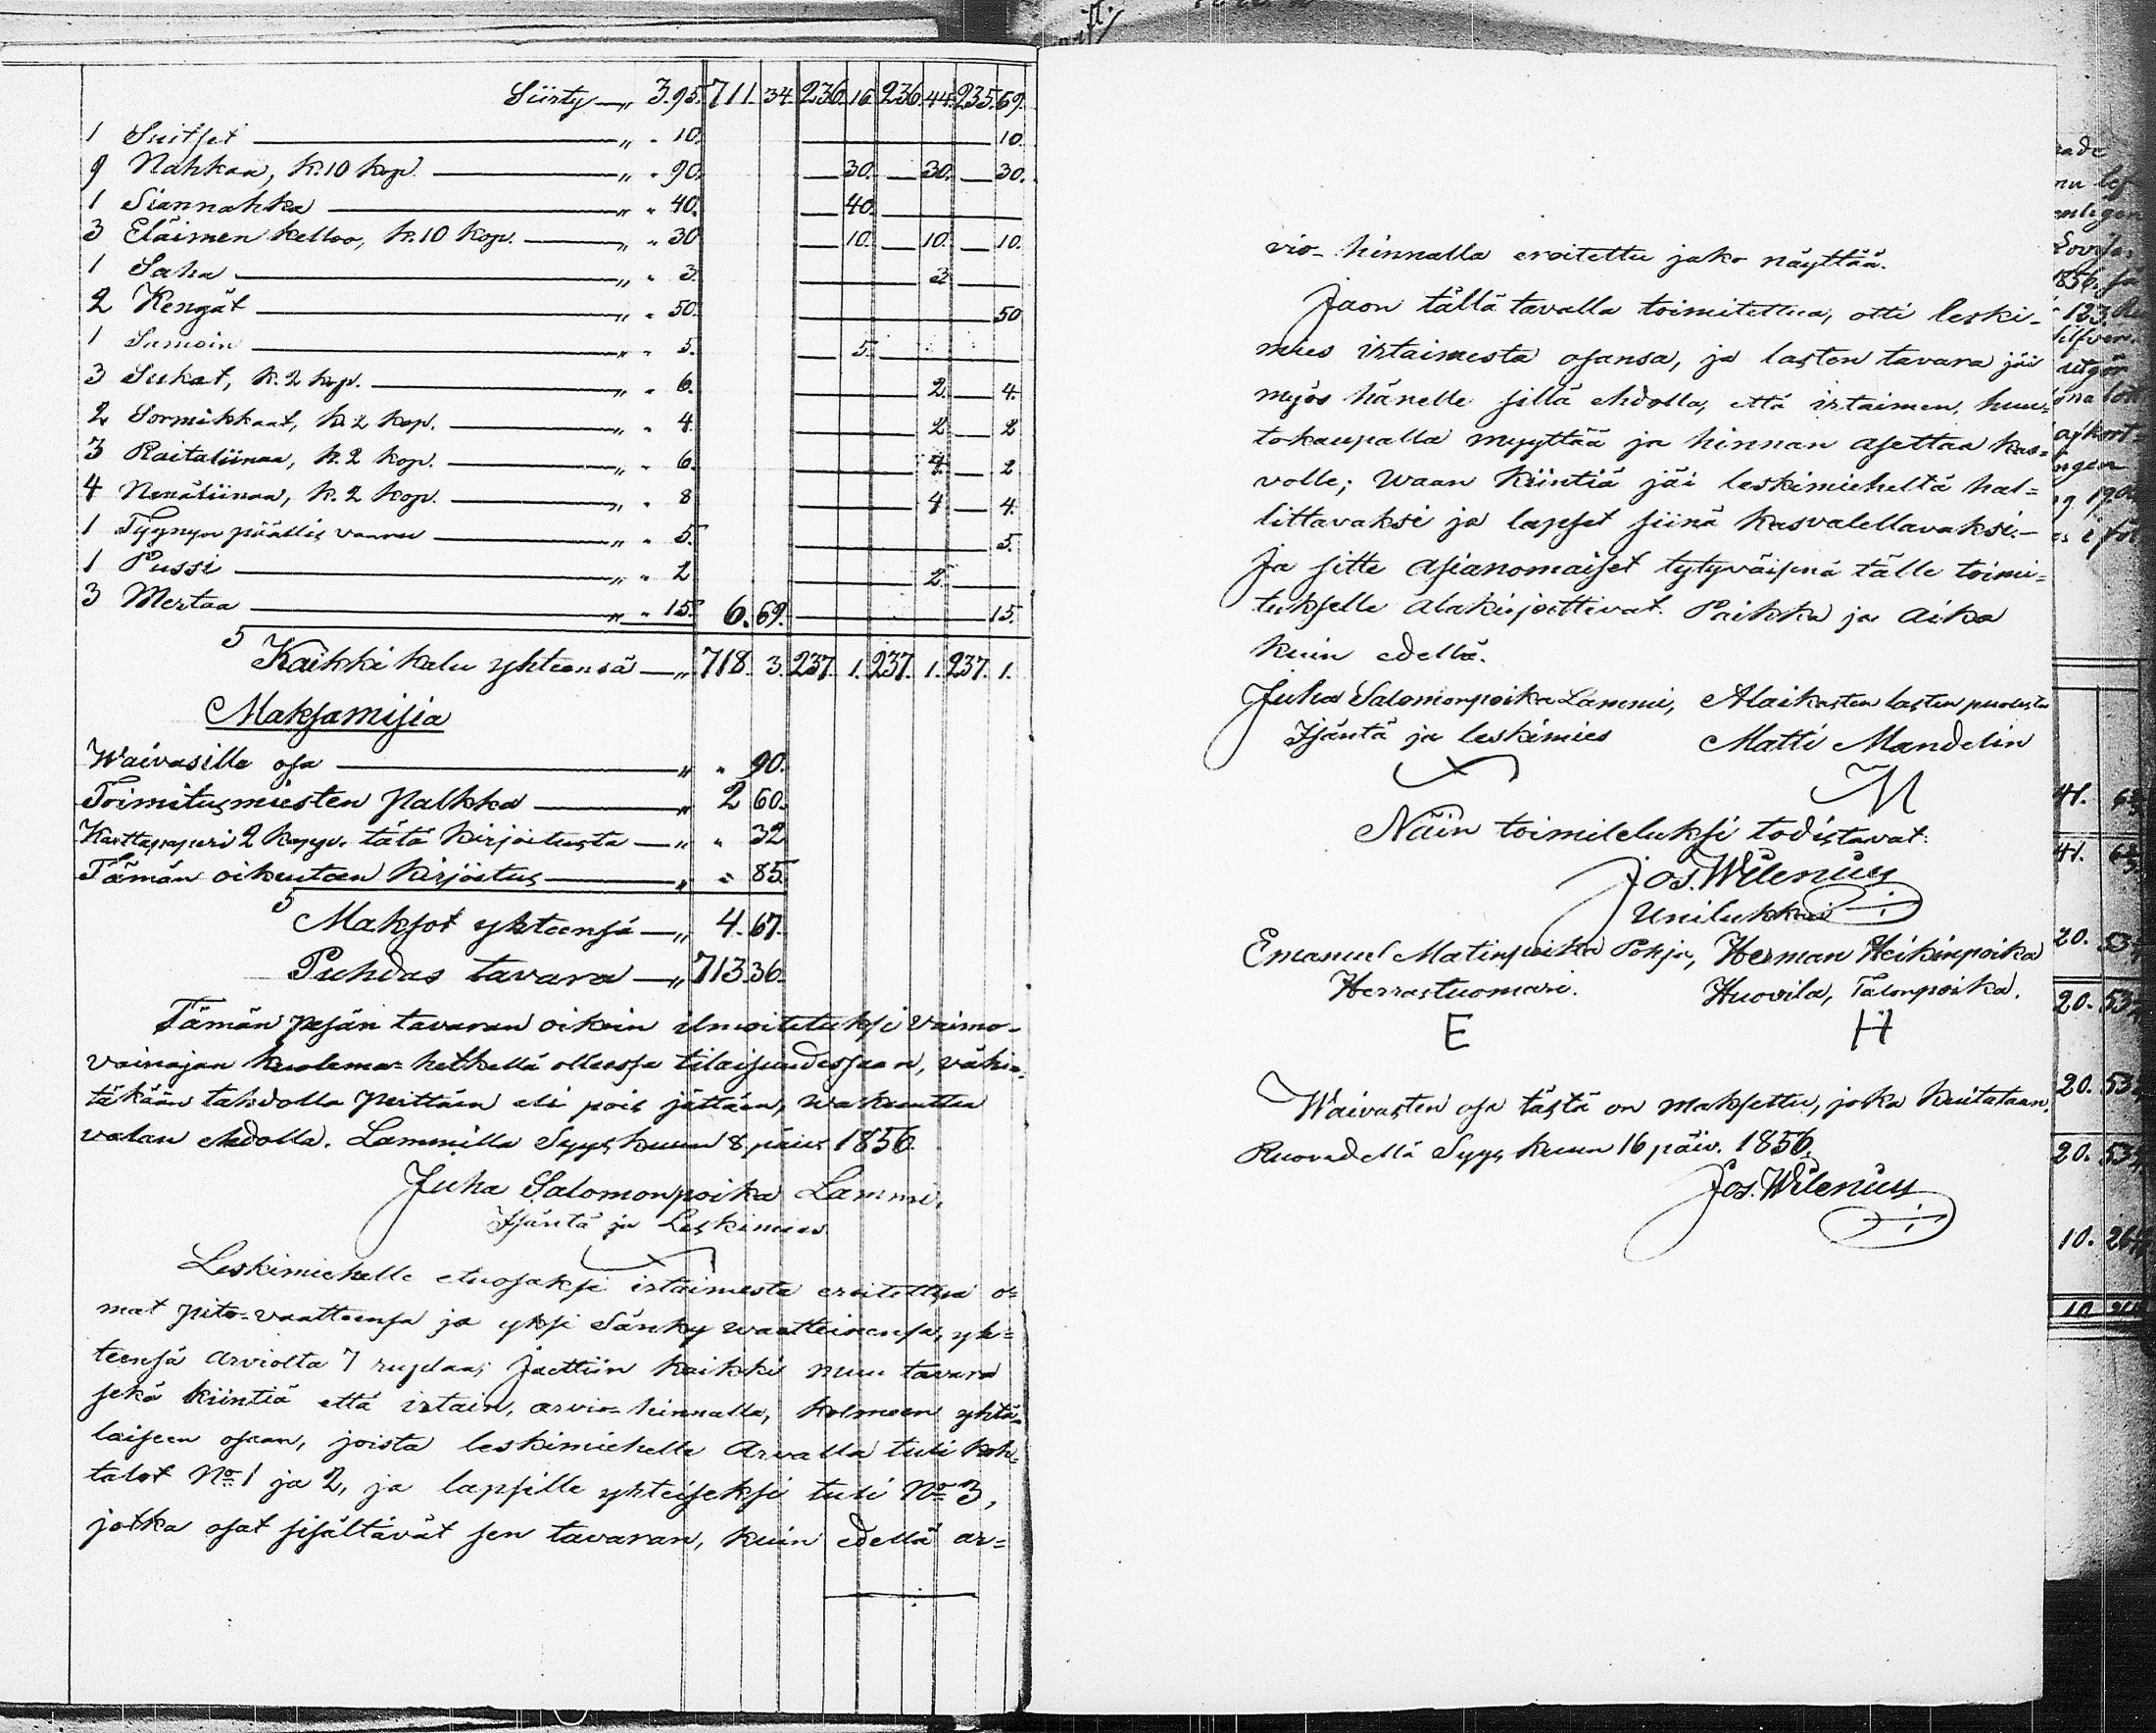 Siirty — „ 3.95. 711. 34. 236. 16. 236. 44. 235. 69.
1 Suitset — „ „ 10. — 10.
9 Nahkaa, k. 10 kop. — „ „ 90. — 30. — 30. — 30.
1 Siannahka — „ „ 40. — 40. —
3 Eläimen kelloo, k. 10 kop. — „ „ 30 — 10. — 10. — 10.
1 Saha — „ „ 3. — 3. —
2 Kengät — „ „ 50. — 50
1 Samoin — „ „ 5. — 5. —
3 Sukat, k. 2 kop. — „ „ 6. — 2. — 4.
2 Sormikkaat, k. 2 kop. — „ „ 4. — 2 — 2
3 Raitaliinaa, k. 2 kop. — „ „ 6. — 4. — 2
4 Nenäliinaa, k. 2 kop. — „ „ 8 — 4 — 4.
1 Tyynyn päällis — „ „ 5. — 5.
1 Pussi — „ „ 2 — 2. —
3 Mertaa — „ „ 15. 6. 69. — 15.
S Kaikki kalu yhteensä — „ 718. 3. 237. 1. 237. 1. 237. 1.
Maksamisia
Waivasille osa — „ „ 90.
Toimitusmiesten palkka — „ 2 60.
Karttapaperi 2 kapp. tätä kirjoitusta — „ „ 32
Tämän oikeuteen kirjoitus — „ „ 85.
S Maksot yhteensä — „ 4. 67.
Puhdas tavara — „ 713. 36.
Tämän pesän tavaran oikein ilmoitetuksi vaimo-
vainajan kuolema-hetkellä ollessa tilaisuudessaan, vähin-
täkään tahdolla peittäen eli pois jättäen, wakuuttaa
valan ehdolla. Lammilla Syys kuun 8. päiv. 1856.
Juha Salomonpoika Lammi,
Isäntä ja Leskimies.
Leskimiehelle etuosaksi irtaimesta eroitettua o=
mat pito-vaatteensa ja yksi Sänky waatteinensa, yh=
teensä arviolta 7 ruplaa; jaettiin kaikki muu tavara
sekä kiintiä että irtain, arvio-hinnalla, kolmeen yhtä-
laiseen osaan, joista leskimiehelle arvalla tuli koh-
talot No. 1 ja 2, ja lapsille yhteiseksi tuli No. 3,
jotka osat sisältävät sen tavaran, kuin edellä ar=
vio-hinnalla eroitettu jako näyttää.
Jaon tällä tavalla toimitettua, otti leski-
mies irtaimesta osansa, ja lasten tavara jäi
myös hänelle sillä ehdolla, että irtaimen, huu-
tokaupalla myyttää ja hinnan asettaa kas=
volle; waan kiintiä jäi leskimieheltä hal=
littavaksi ja lapset siinä kasvatellavaksi. —
Ja sitte asianomaiset tytyväisenä tälle toimi=
tukselle alakirjoittivat. Paikka ja aika
kuin edellä.
Juha Salomonpoika Lammi, Alaikasten lasten puolesta
Isäntä ja leskimies Matti Mandelin
M
Näin toimiteluksi todistavat:
Jos. Wilenius
Unilukkari
Emanuel Matinpoika Pohja, Herman Heikinpoika
Herrastuomari. Huovila, Talonpoika.
E H
Waivasten osa tästä on maksettu, joka kuitataan.
Ruovedellä Syys kuun 16 päiv. 1856.
Jos. Wilenius